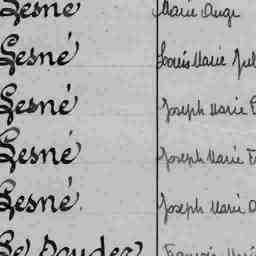 Lesné Marie Ange
Lesné Louis Marie Jul
Lesné Joseph Marie
Lesné Joseph Marie F
Lesné Joseph Marie
Le Marie